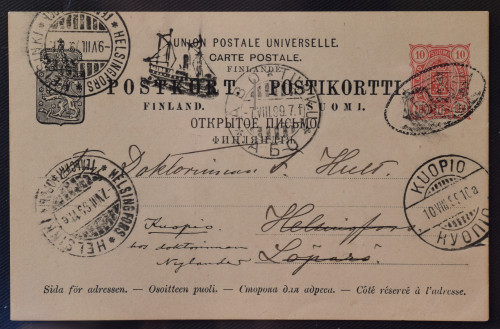 UNION POSTALE UNIVERSELLE.
CARTE POSTALE.
FINLANDE
POSTKORT. POSTIKORTTI.
FINLAND. SUOMI.
ОТКРЫТОЕ ПИСЬМО
ФИНЛЯНДІЯ
10 10
HELSINGFORS
9 VIII
ÅBO
7.VIII.99.7
АБО
HELSINGFORS
KUOPIO
10 VIII 99 10a
КУОПІО
Doktorinnan S. Hult.
Kuopio Helsingfors
hos doktorinnan Löparö
Nylander
Sida för adressen. — Osoitteen puoli. — Сторона для адреса. — Côté réservé à l'adresse.